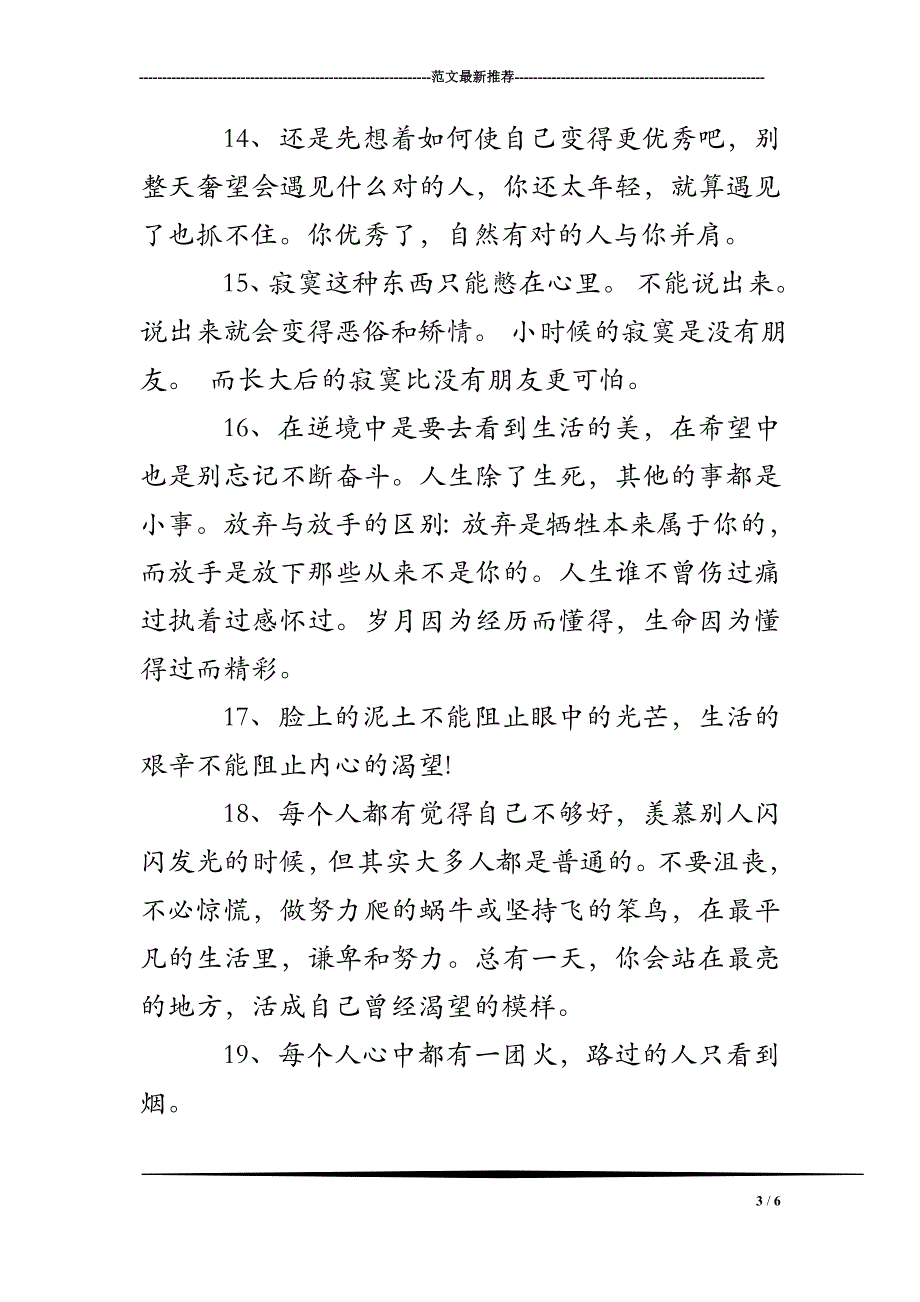 ---------------------------------------------------------------范文最新推荐------------------------------------------------------
14、还是先想着如何使自己变得更优秀吧，别
整天奢望会遇见什么对的人，你还太年轻，就算遇见
了也抓不住。你优秀了，自然有对的人与你并肩。
15、寂寞这种东西只能憋在心里。 不能说出来。
说出来就会变得恶俗和矫情。 小时候的寂寞是没有朋
友。 而长大后的寂寞比没有朋友更可怕。
16、在逆境中是要去看到生活的美，在希望中
也是别忘记不断奋斗。人生除了生死，其他的事都是
小事。放弃与放手的区别: 放弃是牺牲本来属于你的，
而放手是放下那些从来不是你的。人生谁不曾伤过痛
过执着过感怀过。岁月因为经历而懂得，生命因为懂
得过而精彩。
17、脸上的泥土不能阻止眼中的光芒，生活的
艰辛不能阻止内心的渴望!
18、每个人都有觉得自己不够好，羡慕别人闪
闪发光的时候，但其实大多人都是普通的。不要沮丧，
不必惊慌，做努力爬的蜗牛或坚持飞的笨鸟，在最平
凡的生活里，谦卑和努力。总有一天，你会站在最亮
的地方，活成自己曾经渴望的模样。
19、每个人心中都有一团火，路过的人只看到
烟。
3 / 6